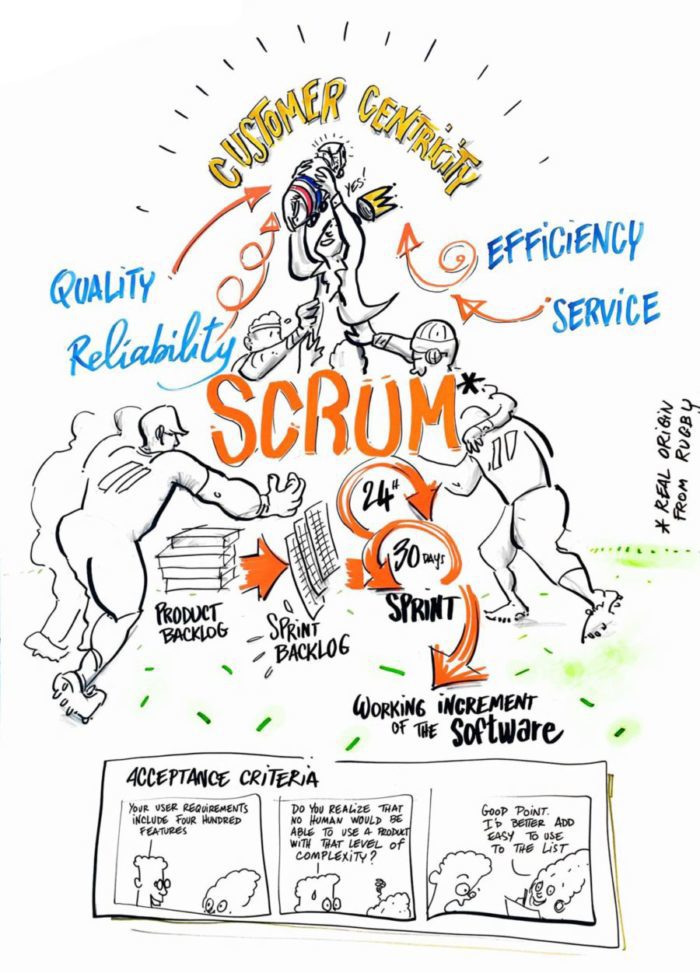 CUSTOMER CENTRICITY
YES!
QUALITY
Reliability
EFFICIENCY
SERVICE
SCRUM*
* REAL ORIGIN
FROM RUGBY
24H
30 DAYS
SPRINT
PRODUCT
BACKLOG
SPRINT
BACKLOG
WORKING INCREMENT
OF THE Software
ACCEPTANCE CRITERIA
YOUR USER REQUIREMENTS
INCLUDE FOUR HUNDRED
FEATURES
DO YOU REALIZE THAT
NO HUMAN WOULD BE
ABLE TO USE A PRODUCT
WITH THAT LEVEL OF
COMPLEXITY?
GOOD POINT.
I'D BETTER ADD
EASY TO USE
TO THE LIST